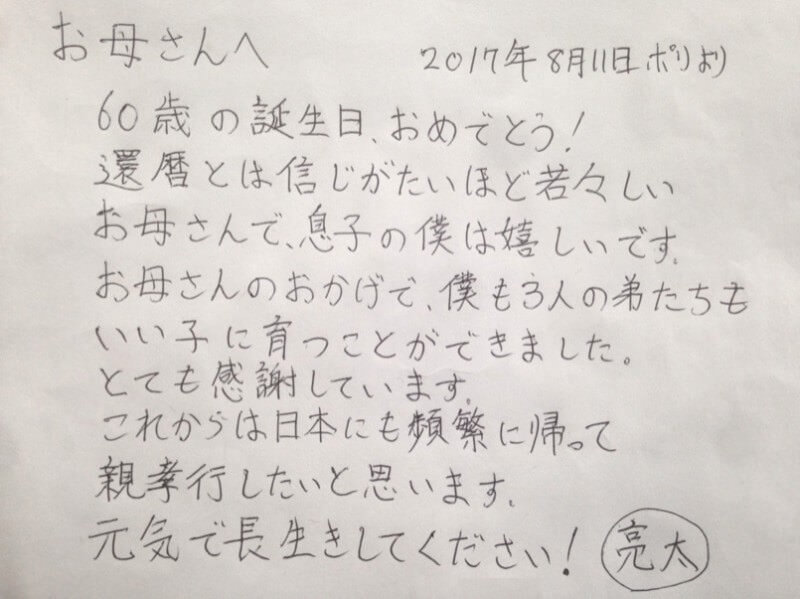 お母さんへ
2017年8月11日 ポリより
60歳の誕生日、おめでとう!
還暦とは信じがたいほど若々しい
お母さんで、息子の僕は嬉しいです。
お母さんのおかげで、僕も3人の弟たちも
いい子に育つことができました。
とても感謝しています。
これからは日本にも頻繁に帰って
親孝行したいと思います。
元気で長生きしてください! 亮太